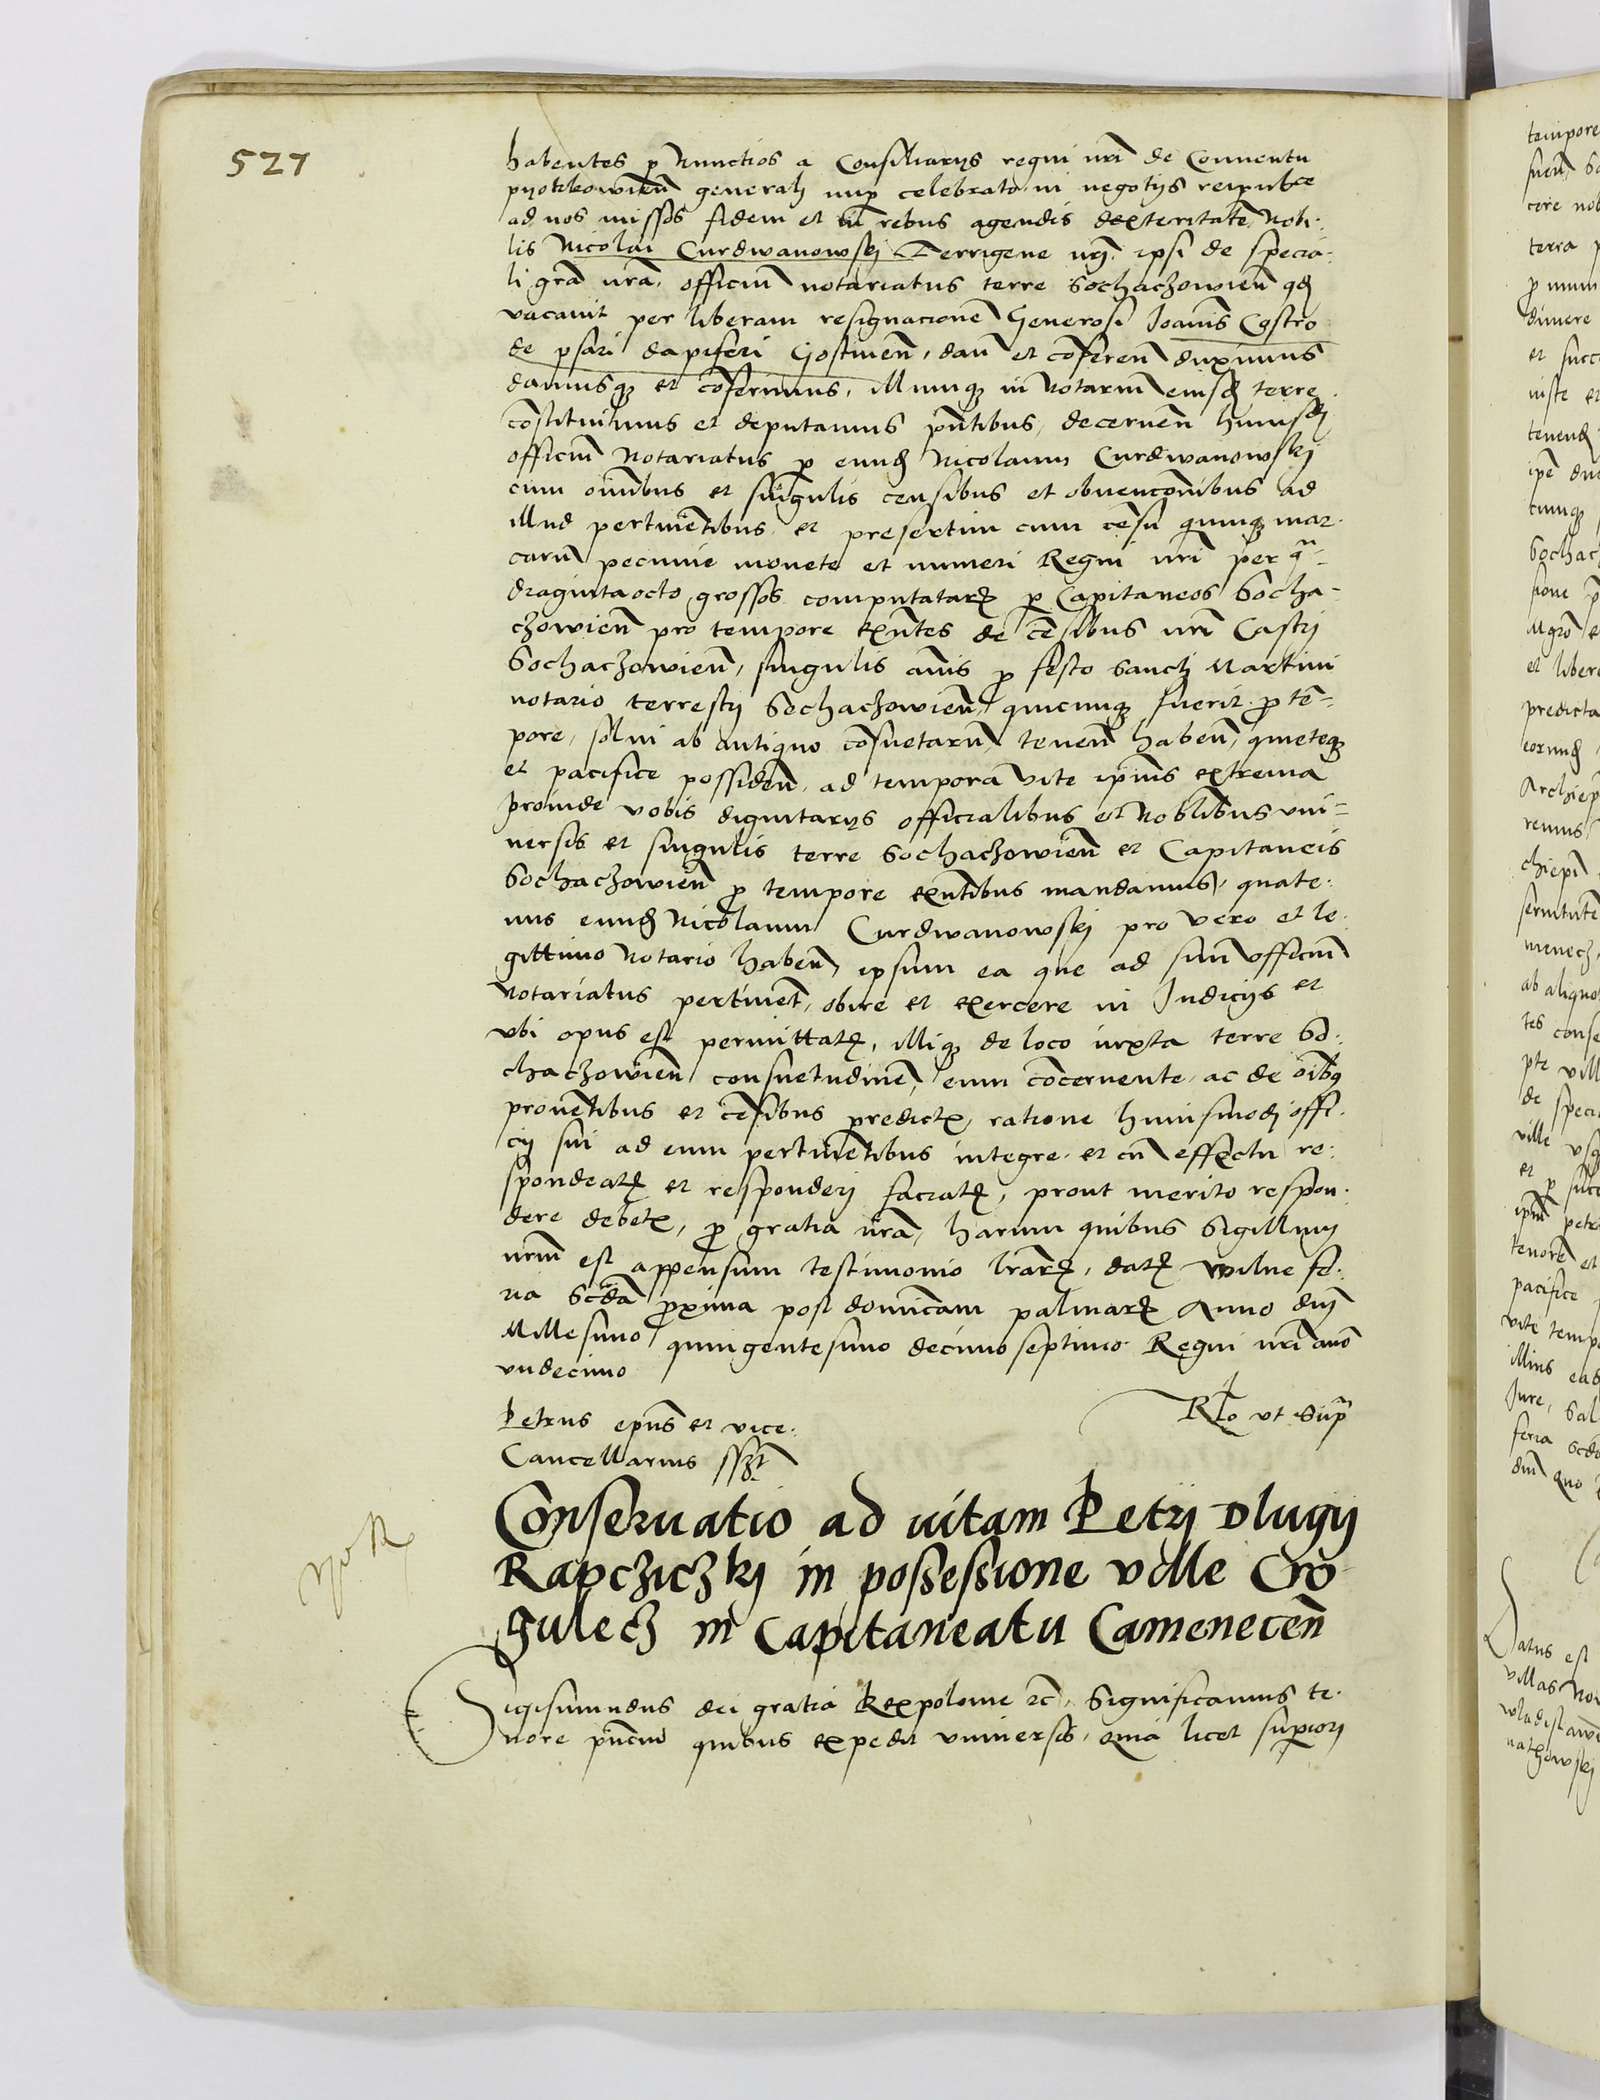 527
habentes p Nunctios a Consiliarijs regni nri de Conuentu
pijotrkowien generalj nup celebrato in negotijs reipubce
ad nos missos fidem et in rebus agendis dexteritate Nobi-
lis Nicolai Curdwanowskj Terrigene nrj ipsi de specia-
li gra nra officiu notariatus terre Sochaczowien qd
vacauit per liberam resignacione Generosi Joanis Costro
de psari dapiferi Gostinen, dan et coferen duximus
damusq et coferimus, illumq in Notariu eiusd terre
costituimus et deputamus pntibus, decernen huiusdj
officiu Notariatus p eund Nicolaum Curdwanowskj
cum omibus et singulis censibus et obuenconibus ad
illud pertinetibus et presertim cum cesu quinq mar-
caru pecunie monete et numeri Regni nri per qa-
draginta octo grossos computatar p Capitaneos Socha-
czowien pro tempore exntes de cesibus nri Castrj
Sochaczowien, singulis anis p festo Sanctj Martini
notario terrestrj Sochaczowien, quicunq fuerit p te-
pore, solui ab antiquo cosuetaru, tenen haben, quieteq
et pacifice possiden, ad tempora vite ipius extrema
proinde vobis dignitarijs officialibus et Noblibus vni-
uersis et singulis terre Sochaczowien et Capitaneis
Sochaczowien p tempore exntibus mandamus, quate-
nus eund Nicolaum Curdwanowskj pro vero et le-
gittimo Notario haben, ipsum ea que ad suu officiu
Notariatus pertinet, obire et exercere in Judicijs et
vbi opus est permittat, illiq de loco iuxta terre So-
chaczowien consuetudine, eum cocernente ac de oibq
prouetibus et cesibus predict, ratione huiusmodj offi-
cij sui ad eum pertinetibus integre et cu effectu re-
spondeat et responderj faciat, prout merito respon-
dere debet, p gratia nra, harum quibus Sigillum
nrm est appensum testimonio lrar, dat Wilne fe-
ria Scda pxima post dominicam palmar Anno dnj
Millesimo quingentesimo decimo septimo Regni nri ano
vndecimo
Petrus epus et vice
Cancellarius sszt
Rlo vt supa
Conseruatio ad uitam Petrj Dlugij
Rapcziczkj in possessione ville Cro
gulecz in Capitaneatu Camenecen
Sigismundus dei gratia Rex polonie zc, Significamus te-
nore pnciu quibus expedit vniuersis, quia licet superiorj